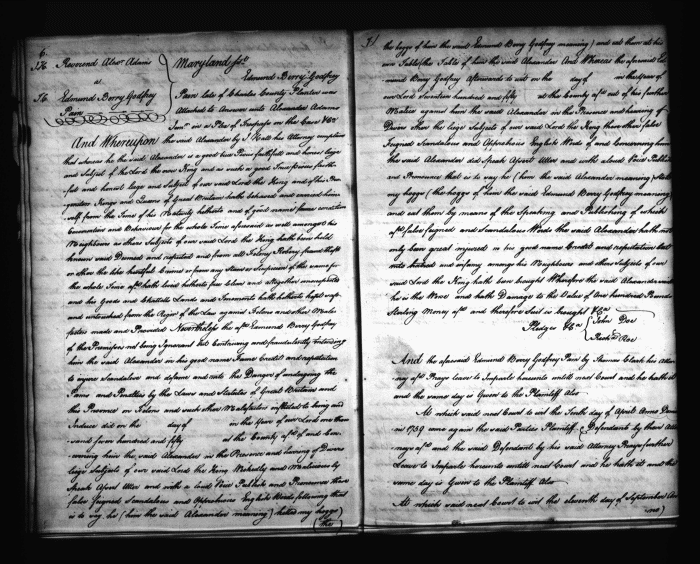 6.
176 Reverend Alexr. Adams
vs
56 Edmund Berry Godfrey
Pam
Maryland Ss.t
Edmund Berry Godfrey
Pam late of Charles County Planter was
Attached to Answer unto Alexander Adams
in a Plea of Trespass on the Case &Ca
And Whereupon the said Alexander by his Attorney complains
that whereas he the said Alexander is a good true Pious faithfull and honest liege
and Subject of the Lord the now King and as such a good true pious faith-
full and honest liege and Subject of our said Lord the King and of his Pro-
genitors Kings and Queens of Great Britain hath behaved and carried him-
self from the Time of his Nativity hitherto and of good name fame condition
Conversation and Behaviour for the whole Time aforesaid as well amongst his
Neighbours as other Subjects of our said Lord the King hath been held
known said Deemed and reputed and from all Felony Robery fraud theft
or other the like hurtfull Crimes or from any Stain or Suspicion of the same for
the whole time afd. hath lived hitherto free clear and altogether
and his Goods and Chattels Lands and Tenements hath hitherto kept safe
and untouched from the Rigor of the Law against Felons and other Male-
factors made and Provided Nevertheless the afd. Edmund Berry Godfrey
of the Premises not being Ignorant but Contriving and fraudulently intending
him the said Alexander in his good name Fame Credit and reputation
to injure Scandalize and defame and into the Danger of undergoing the
Pains and Penalties by the Laws and Statutes of Great Britain and
this Province on Felons and such other Malefactors inflicted to bring and
Induce did on the day of in the Year of our Lord one thou-
sand seven hundred and fifty at the County afd. of and Con-
cerning him the said Alexander in the Presence and hearing of Divers
liege Subjects of our said Lord the King Wickedly and Maliciously
Speak Assert Utter and with a loud Voice Publish and Pronounce these
false feigned Scandalous and Opprobrious English Words following that
is to say he (him the said Alexander meaning) my hoggs
(the
7.
the hoggs of him the said Edmund Berry Godfrey meaning) and eat them at his
own Table (the Table of him the said Alexander And Whereas the aforesaid Ed-
mund Berry Godfrey Afterwards to wit on the day of in the Year of
our Lord Seventeen hundred and fifty at the County afd. out of his further
Malice against him the said Alexander in the Presence and hearing of
Divers other the liege Subjects of our said Lord the King these other false
feigned Scandalous and Opprobrious English Words of and Concerning him
the said Alexander did Speak Assert Utter and with aloud Voice Publish
and Pronounce that is to say he (him the said Alexander meaning)
my hoggs (the hoggs of him the said Edmund Berry Godfrey meaning)
and eat them by means of the Speaking and Publishing of which
afd. false feigned and Scandalous Words the said Alexander hath not
only been great injured in his good name Credit and reputation but
into hatred and infamy amongs his Neighbours and other Subjects of our
said Lord the King hath been brought Wherefore the said Alexander saith
he is the Worse and hath Damage to the Value of One hundred Pounds
Sterling Money afd. and therefore Suit is brought &Ca
Pledges &Ca John Doe
Richd. Roe
And the aforesaid Edmund Berry Godfrey Pam by Thomas Clark his Attor-
ney afd. Prays leave to Imparle hereunto untill next Court and he hath it
and the same day is Given to the Plaintiff Also
At which said next Court to wit the Tenth day of April Anno Domi-
ni 1759 came again the said Parties Plaintiff & Defendant by their Attor-
neys afd. and the said Defendant by his said Attorney Prays further
Leave to Imparle hereunto untill next Court and he hath it and the
same day is Given to the Plaintiff Also
At which said next Court to wit the eleventh day of September Anno